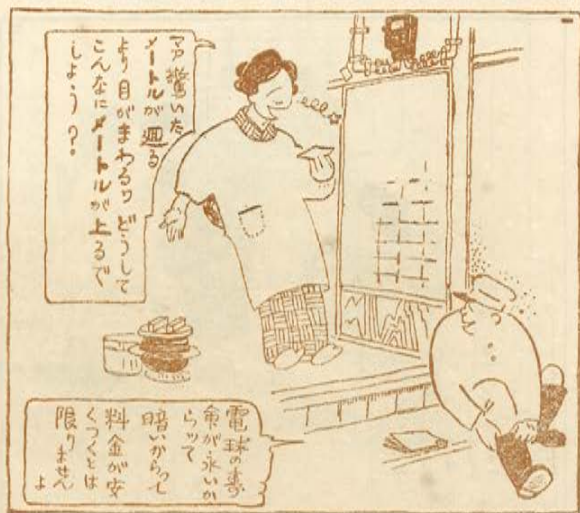 マア驚いた
メートルが廻る
より目がまわるワどうして
こんなにメートルが上るで
しよう？
電球の寿
命が永いか
らツて
暗いからつて
料金が安
くつくとは
限りません
よ